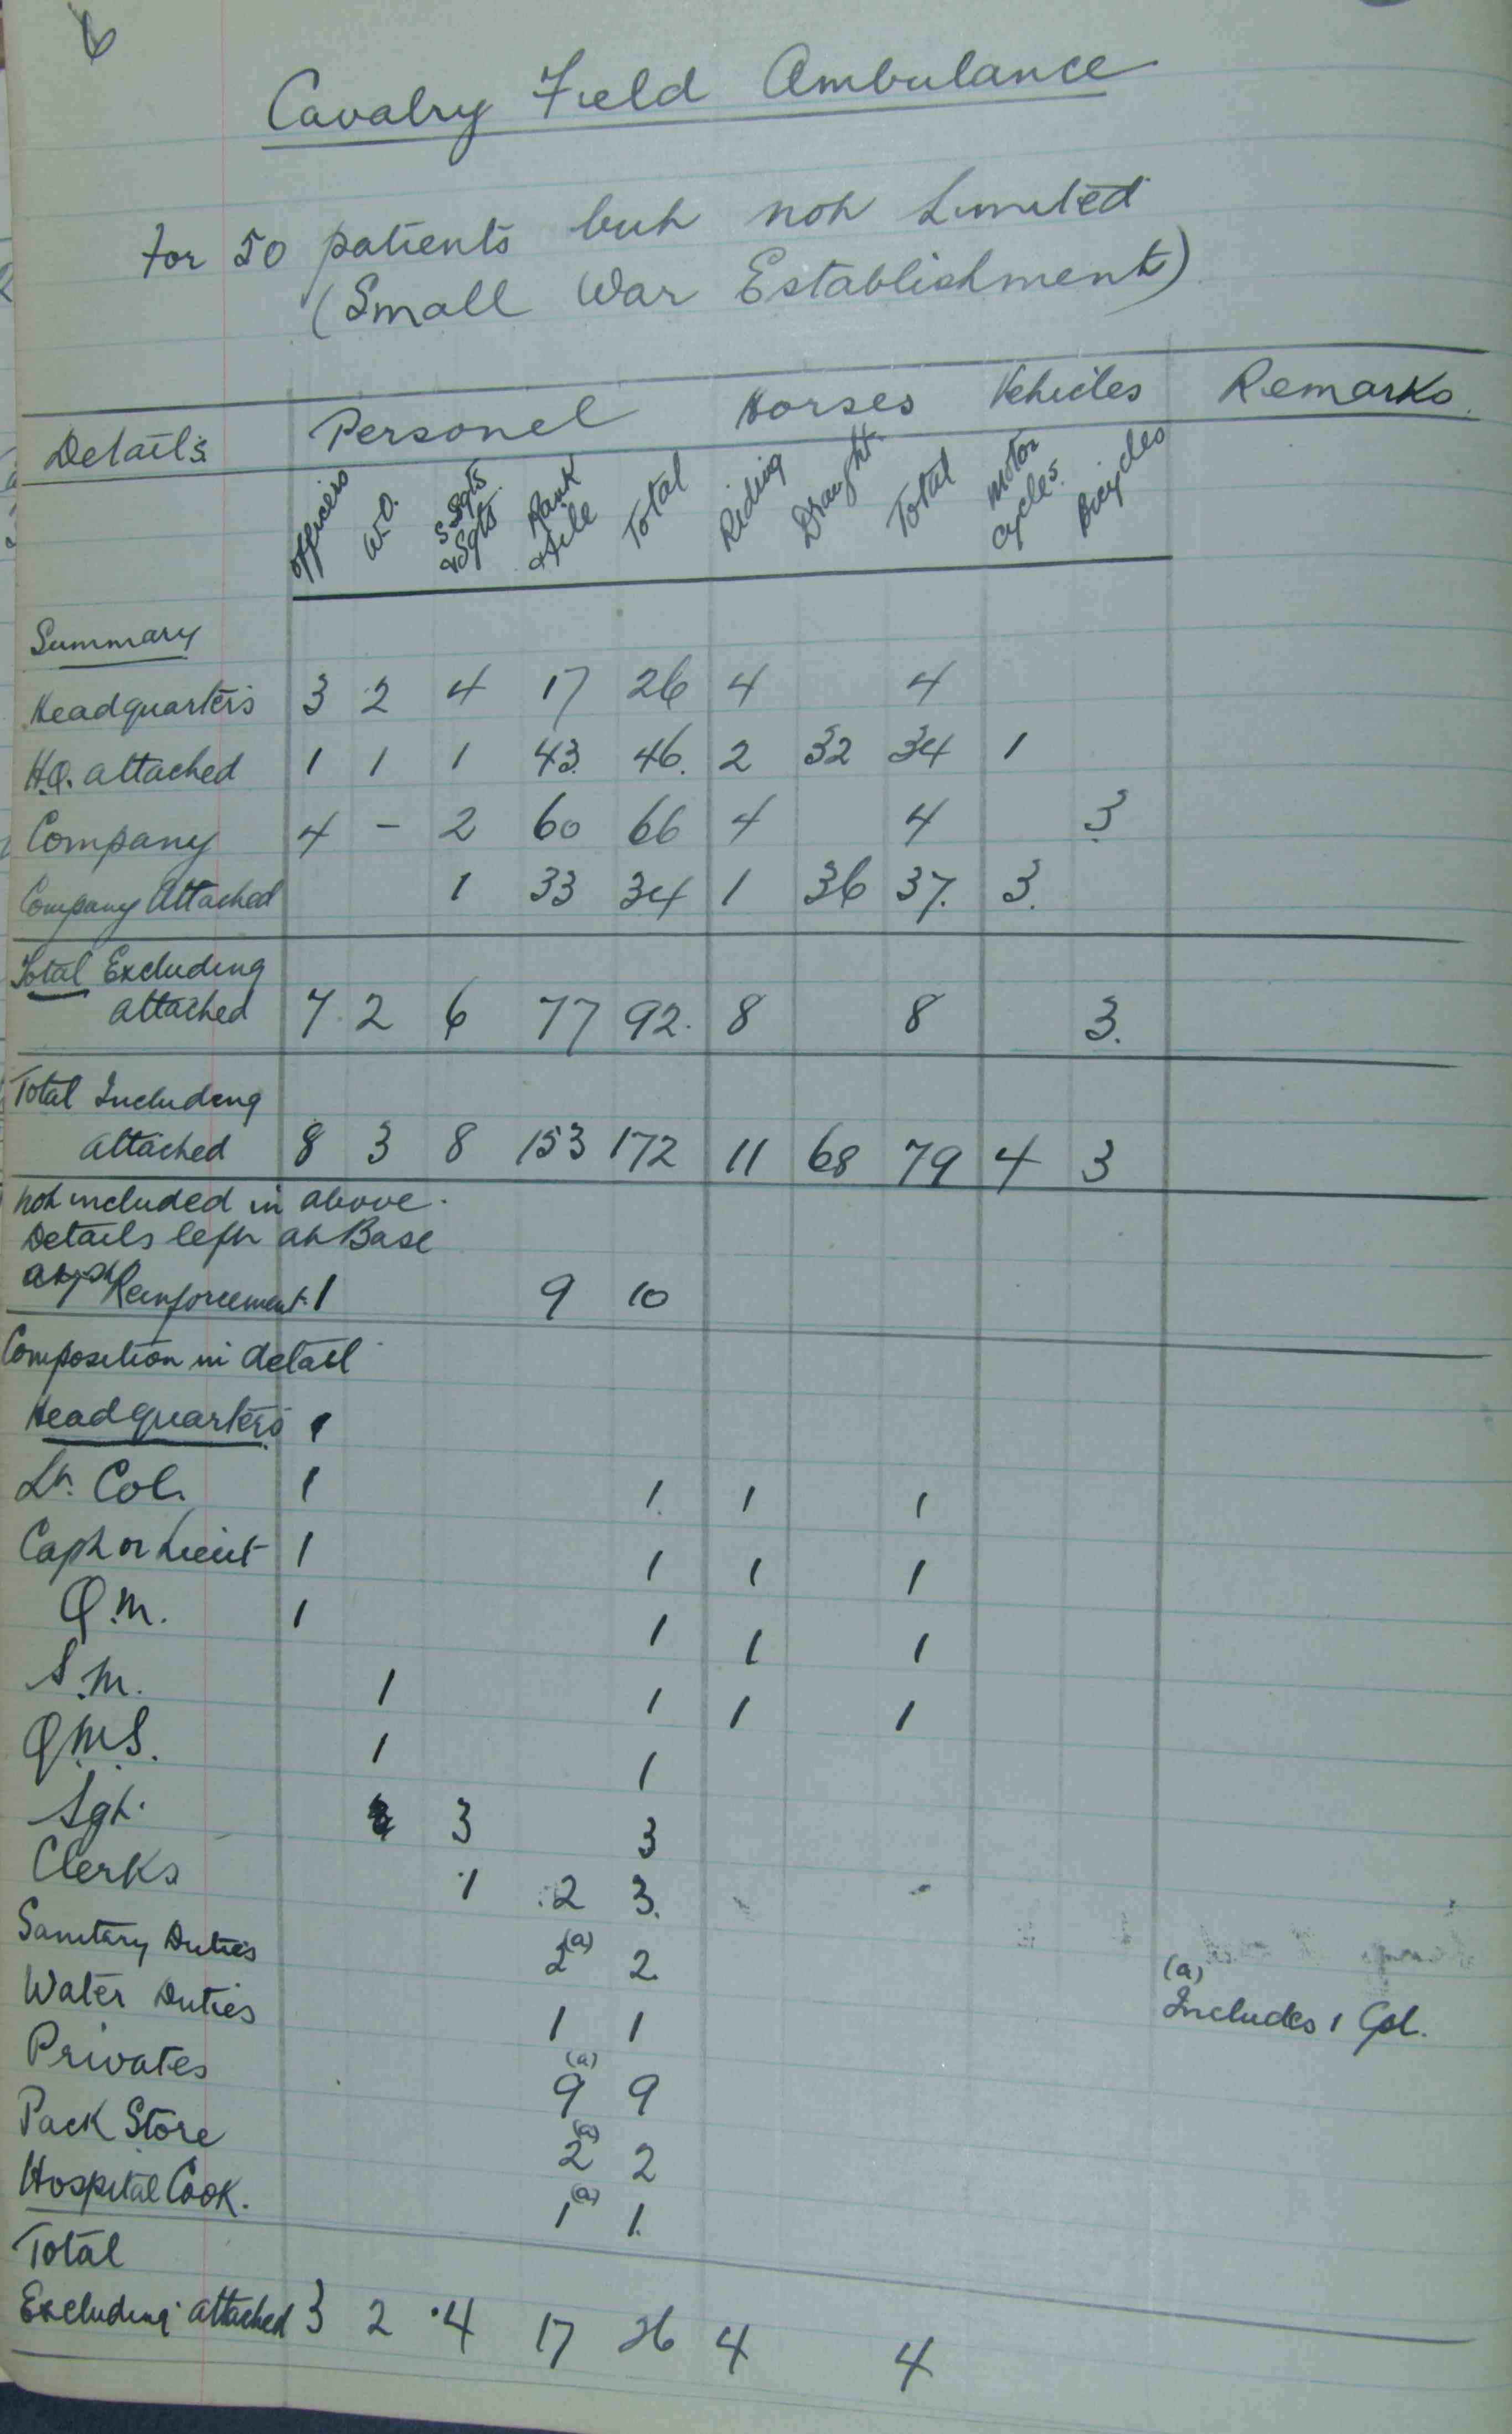 6
Cavalry Field Ambulance
for 50 patients but not Limited
(Small War Establishment)
Details Personel Horses Vehicles Remarks
Officers W.O. S.Sgts & Sgts Rank & File Total Riding Draught Total Motor Cycles Bicycles
Summary
Headquarters 3 2 4 17 26 4 4
H.Q. attached 1 1 1 43 46 2 32 34 1
Company 4 - 2 60 66 4 4 3
Company Attached 1 33 34 1 36 37 3
Total Excluding
attached 7 2 6 77 92 8 8 3
Total Including
attached 8 3 8 153 172 11 68 79 4 3
not included in above.
Details left at Base
Reinforcement 1 9 10
Composition in detail
Headquarters 1
Lt. Col. 1 1 1 1
Capt or Lieut 1 1 1 1
Q.M. 1 1 1 1
S.M. 1 1 1 1
Q.M.S. 1 1
Sgt. 3 3
Clerks 1 2 3
Sanitary Duties 2(a) 2
Water Duties 1 1
(a)
Includes 1 Cpl.
Privates 9(a) 9
Pack Store 2(a) 2
Hospital Cook. 1(a) 1
Total
Excluding attached 3 2 4 17 26 4 4